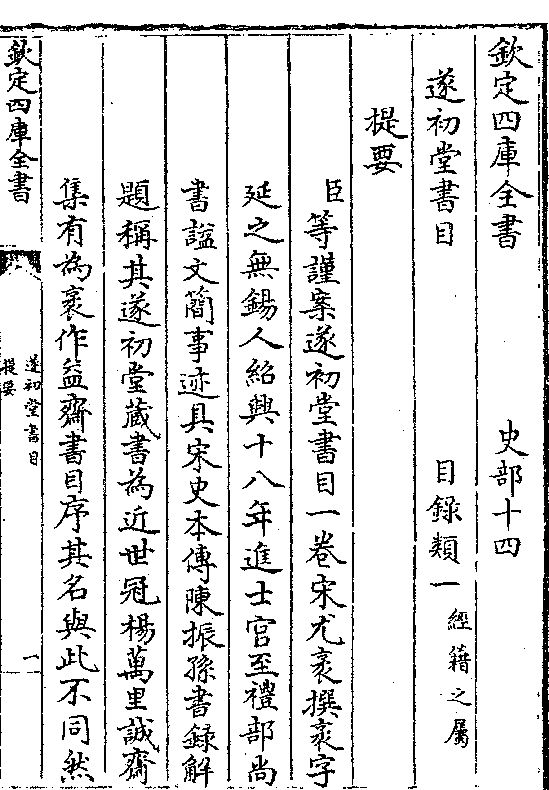 欽定四庫全書　史部十四
遂初堂書目　目録類一 經籍之屬
提要
臣等謹案遂初堂書目一卷宋尤袤撰袤字
延之無錫人紹興十八年進士官至禮部尚
書謚文簡事迹具宋史本傳陳振孫書録解
題稱其遂初堂藏書為近世冠楊萬里誠齋
集有為袤作益齋書目序其名與此不同然
欽定四庫全書
遂初堂書目
提要
一